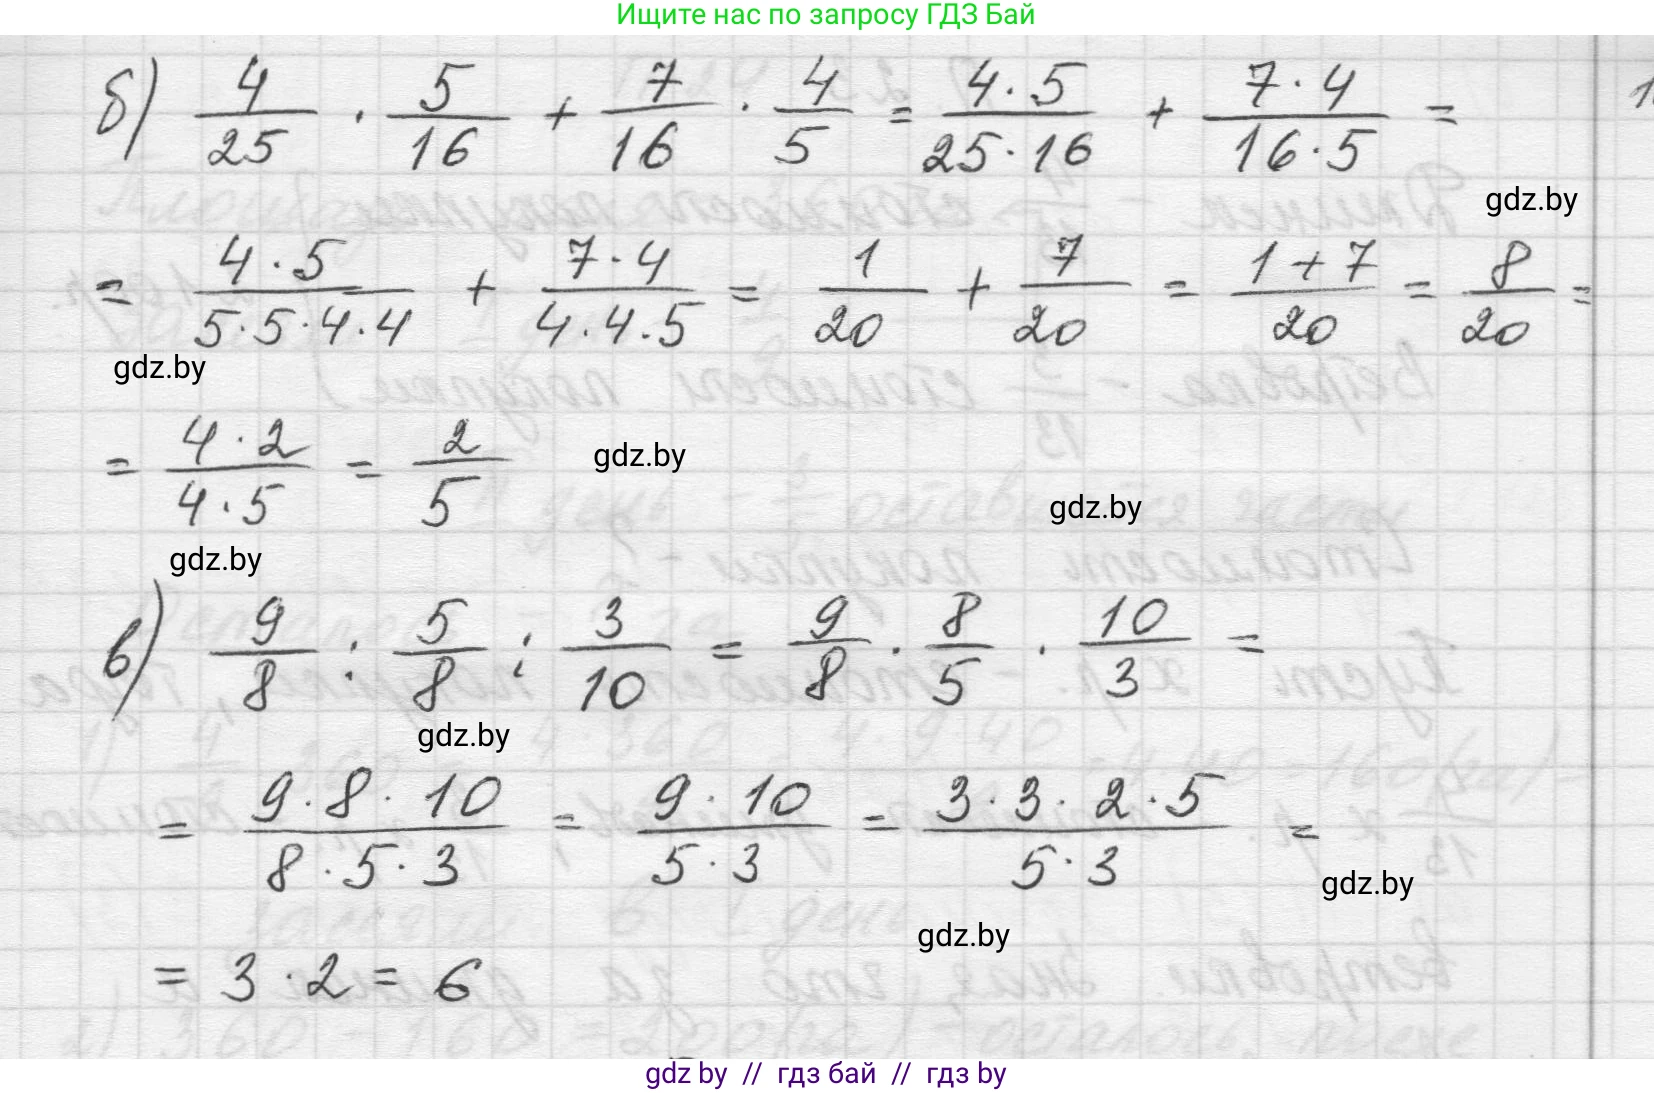 Ищите нас по запросу ГДЗ Бай
б) 4/25 · 5/16 + 7/16 · 4/5 = 4·5/25·16 + 7·4/16·5 =
gdz.by
= 4·5/5·5·4·4 + 7·4/4·4·5 = 1/20 + 7/20 = 1+7/20 = 8/20 =
gdz.by
= 4·2/4·5 = 2/5
gdz.by
gdz.by
gdz.by
в) 9/8 : 5/8 : 3/10 = 9/8 · 8/5 · 10/3 =
gdz.by
= 9·8·10/8·5·3 = 9·10/5·3 = 3·3·2·5/5·3 =
gdz.by
gdz.by
= 3·2 = 6
gdz by // гдз бай // гдз by